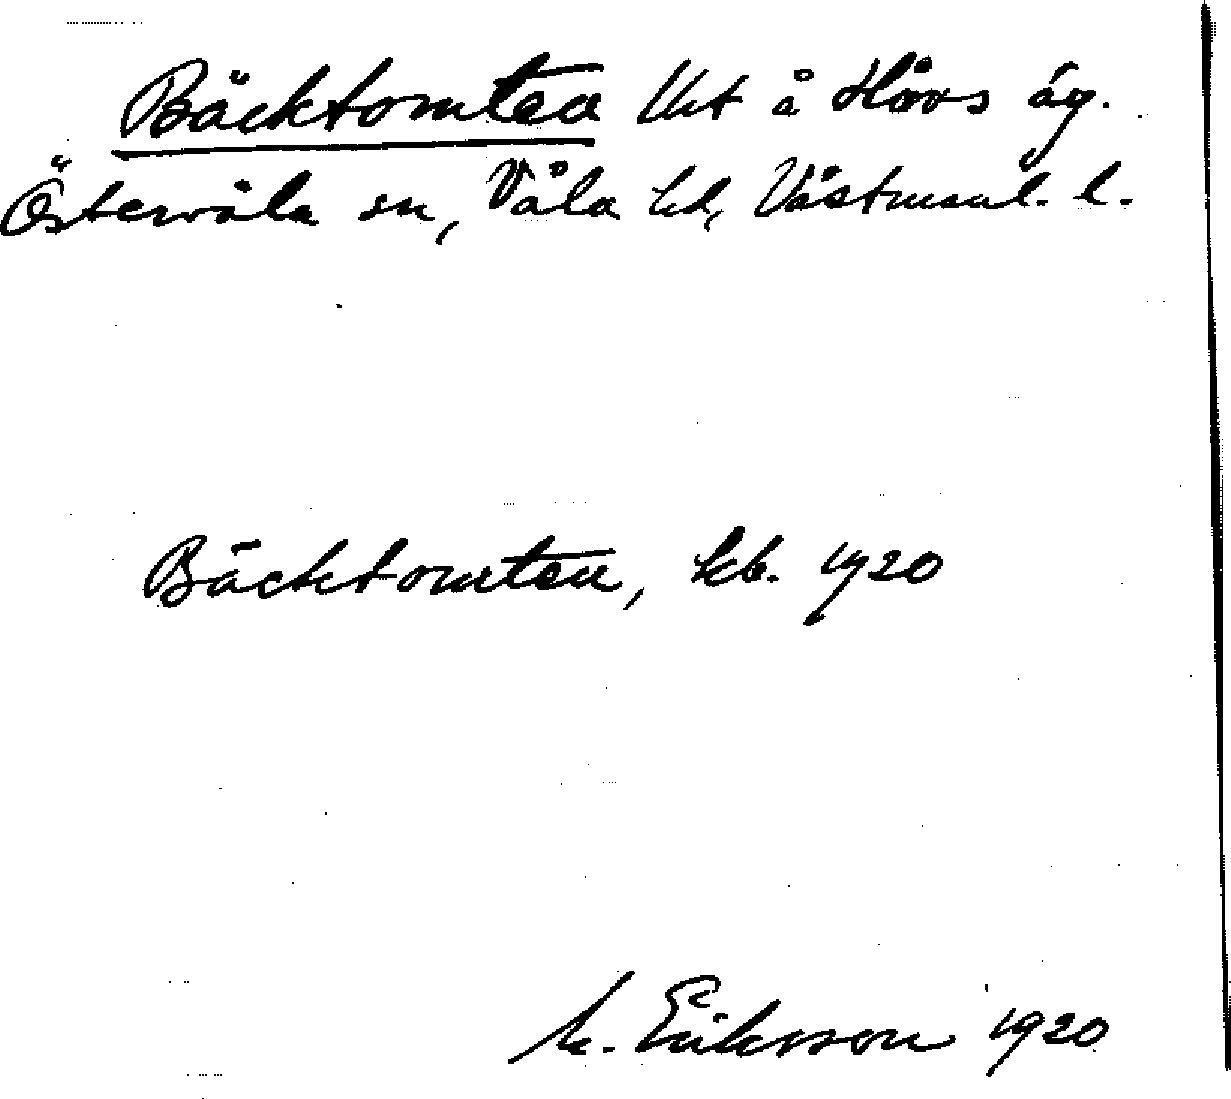 Bäcktomten Utt å Hovs äg.
Östervåla sn, Våla hd, Västmanl. l.
Bäcktomten, kb. 1920
M. Eriksson 1920